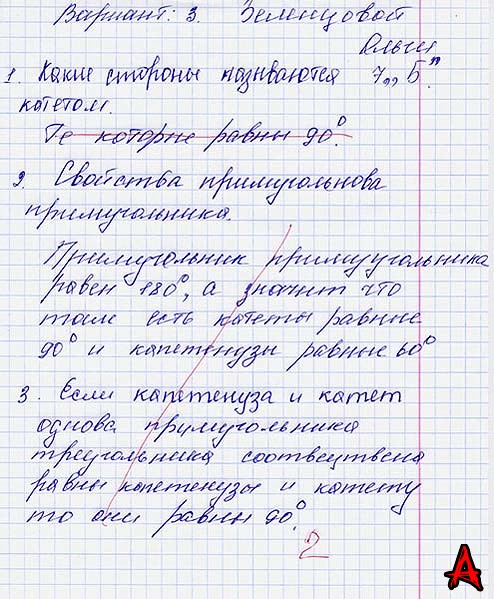 Вариант: 3. Зеленцовой
Ольги
1. Какие стороны называются 7 „Б".
катетом.
Те которые равны 90°.
2. Свойства примугольнова
примугольника.
Примугольник примууголника
равен 180°, а значит что
там есть катеты равные
90° и капетенузы равные 60°
3. Если капетенуза и катет
однова примугольника
треугольника соотвеуствена
равны капетенузы и катету
то они равны 90°.
2
A